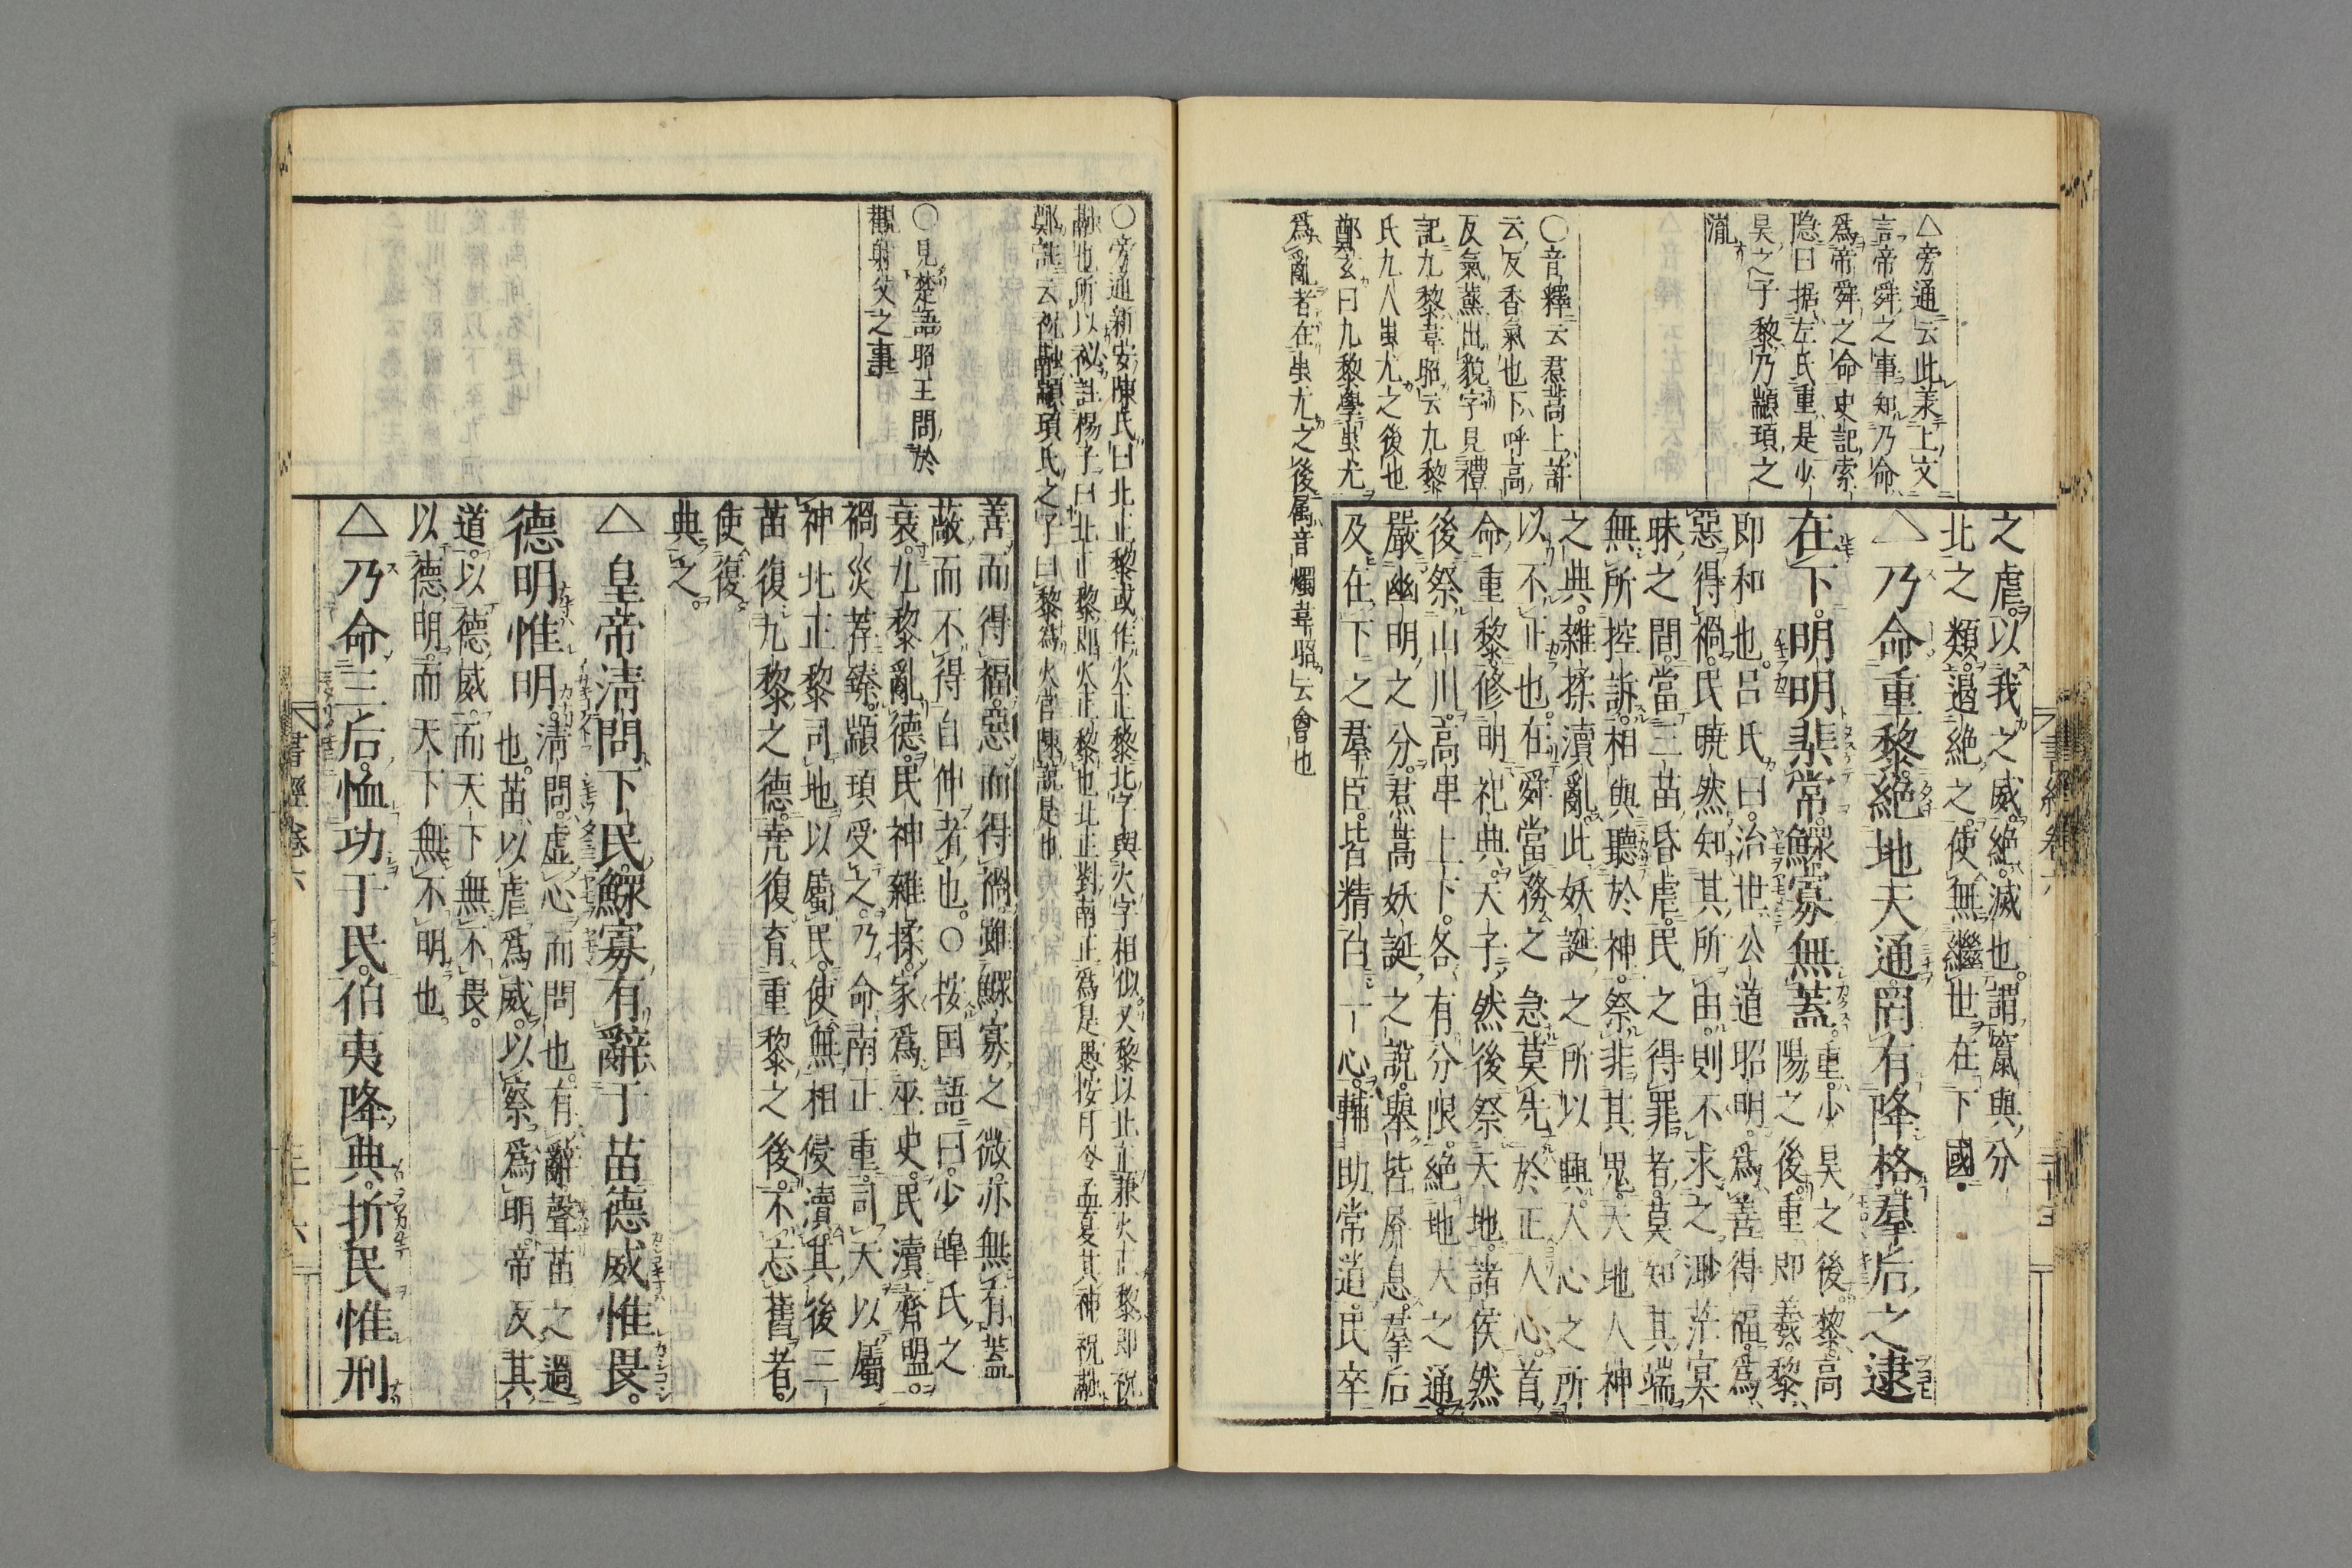 △旁通云此羕上文
言帝舜之事知乃命
爲帝舜之命史記索
隐曰据左氏重是少
昊之子黎乃顓頊之
滝
○音釋云焄蒿上許
云反香氣也下呼高
反氣蒸出貌字見禮
記九黎韋昭云九黎
氏九人蚩尤之後也
鄭玄曰九黎學蚩尤
爲亂者在蚩尤之後属音燭韋昭云會也
之虐以我之威絶滅也謂竄與分
北之類遏絶之使無繼世在下國
△乃命重黎絶地天通罔有降格羣后之逮
在下明明棐常鰥寡無蓋重少昊之後黎高
陽之後重即羲黎
即和也呂氏曰治世公道昭明爲善得福爲
惡得禍民曉然知其所由則不求之渺茫㝠
昧之間當三苗昏虐民之得罪者莫知其端
無所控訴相與聽於神祭非其鬼天地人神
之典雜揉瀆亂此妖誕之所以興人心之所
以不正也在舜當務之急莫先於正人心首
命重黎修明祀典天子然後祭天地諸侯然
後祭山川高卑上下各有分限絶地天之通
嚴幽明之分焄蒿妖誕之說舉皆屏息羣后
及在下之羣臣皆精白一心輔助常道民卒
書經卷六
二十五
○旁通新安陳氏曰北正黎或作火正黎北字與火字相似又黎以北正兼火正黎即祝
融也所以祕註楊子曰北正黎即火正黎也北正對南正爲是愚按月令孟夏其神祝融
鄭註云祝融顓頊氏之子曰黎爲火官陳說是也
○見楚語昭王問於
觀射父之事
善而得福惡而得禍雖鰥寡之微亦無有蓋
蔽而不得自伸者也○按国語曰少皥氏之
衰九黎亂德民神雜揉家爲巫史民瀆齊盟
禍災荐臻顓頊受之乃命南正重司天以屬
神北正黎司地以屬民使無相侵瀆其後三
苗復九黎之德尭復育重黎之後不忘舊者
使復
典之
△皇帝清問下民鰥寡有辭于苗德威惟畏
德明惟明清問虚心而問也有辭聲苗之過
也苗以虐爲威以察爲明帝反其
道以德威而天下無不畏
以德明而天下無不明也
△乃命三后恤功于民伯夷降典折民惟刑
書經卷六
二十六